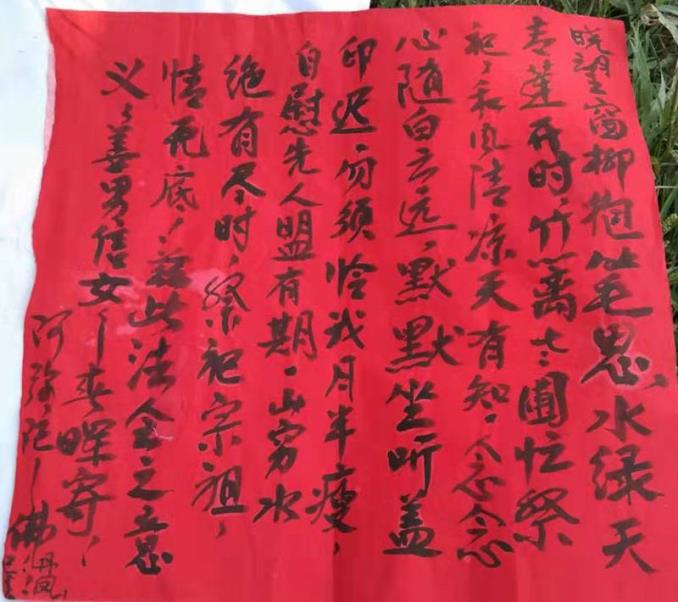 晓望窗柳抱笔思、水绿天
青莲开时、竹篱七七圃忙祭
祀、和风清凉天有知、念念
心随白云远、默默坐听盖
印迟、勿须怜我月半瘦、
自慰先人盟有期、山穷水
绝有尽时、祭祀宗祖、
情无底！兹此法会之意
义、善男信女～
春晖寄！
阿弥陀～佛
丹凤